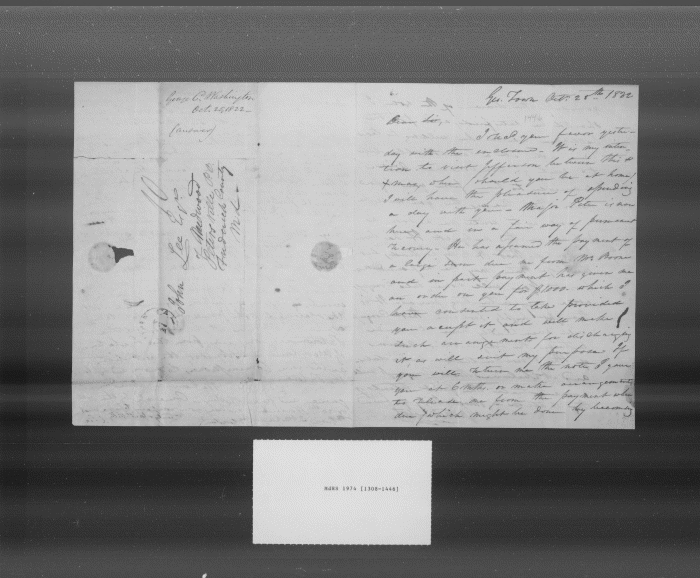 George C. Washington
Oct. 25, 1822
(answered)
John Lee Esqr
Needwood
Petersville P.O.
Frederick County
Md.
Geo. Town Oct. 25th 1822
Dear Sir,
I recd your favor yester-
day with the enclosed. It is my inten
tion to visit Jefferson between this &
Xmas, when should you be at home
I will have the pleasure of spending
a day with you. Major Peter is now
here and in a fair way of permanent
recovery. He has assumed the payment of
a large sum due me from Mr
and in part payment has given me
an order on you for $1000 which I
have consented to take provided
you accept it and will make
such arrangements for discharging
it as will suit my purposes. If
you will return me the note I gave
you at 6 mths, or make arrangements
to release me from the payment when
due (which might be done by becoming
MdHR 1974 [1308-1446]